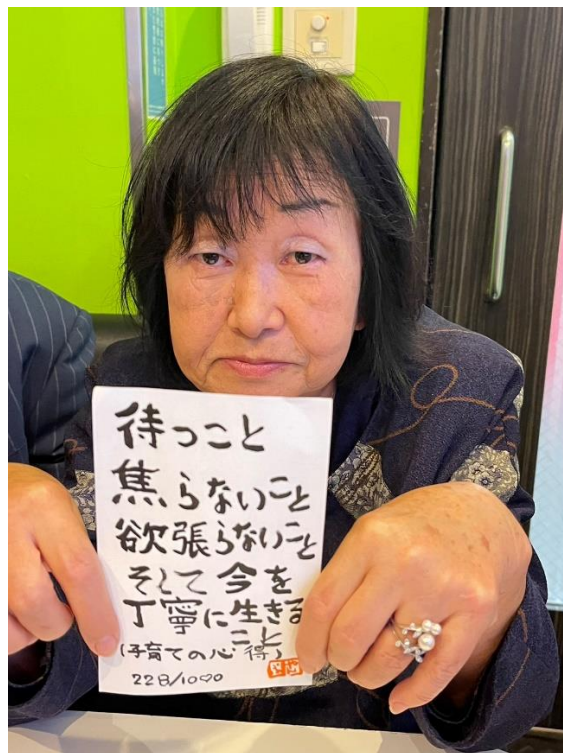 待つこと
焦らないこと
欲張らないこと
そして今を
丁寧に生きる
こと
(子育ての心得)
228/1000